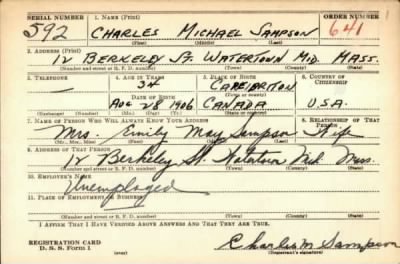 SERIAL NUMBER 1. NAME (Print) ORDER NUMBER
592 CHARLES MICHAEL SAMPSON 641
(First) (Middle) (Last)
2. ADDRESS (Print)
12 BERKELEY ST. WATERTOWN MID. MASS.
(Number and street or R. F. D. number) (Town) (County) (State)
3. TELEPHONE 4. AGE IN YEARS 5. PLACE OF BIRTH 6. COUNTRY OF CITIZENSHIP
34 CAPE BRITON
DATE OF BIRTH (Town or county)
AUG 28 1906 CANADA U.S.A.
(Exchange) (Number) (Mo.) (Day) (Yr.) (State or country)
7. NAME OF PERSON WHO WILL ALWAYS KNOW YOUR ADDRESS 8. RELATIONSHIP OF THAT PERSON
Mrs. Emily May Sampson Wife
(Mr., Mrs., Miss) (First) (Middle) (Last)
9. ADDRESS OF THAT PERSON
12 Berkeley St. Watertown Mid Mass.
(Number and street or R. F. D. number) (Town) (County) (State)
10. EMPLOYER'S NAME
Unemployed
11. PLACE OF EMPLOYMENT OR BUSINESS
(Number and street or R. F. D. number) (Town) (County) (State)
I AFFIRM THAT I HAVE VERIFIED ABOVE ANSWERS AND THAT THEY ARE TRUE.
REGISTRATION CARD
D. S. S. Form 1 (over) Charles M Sampson
(Registrant's signature)